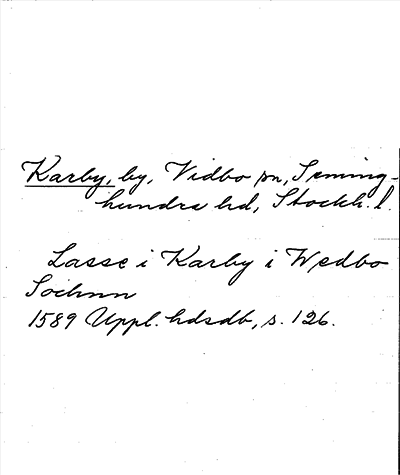 Karby, by, Vidbo sn, Seming-
hundra hd, Stockh. l.
Lasse i Karby i Wedbo
Sochnn
1589 Uppl. hdsdb, s. 126.